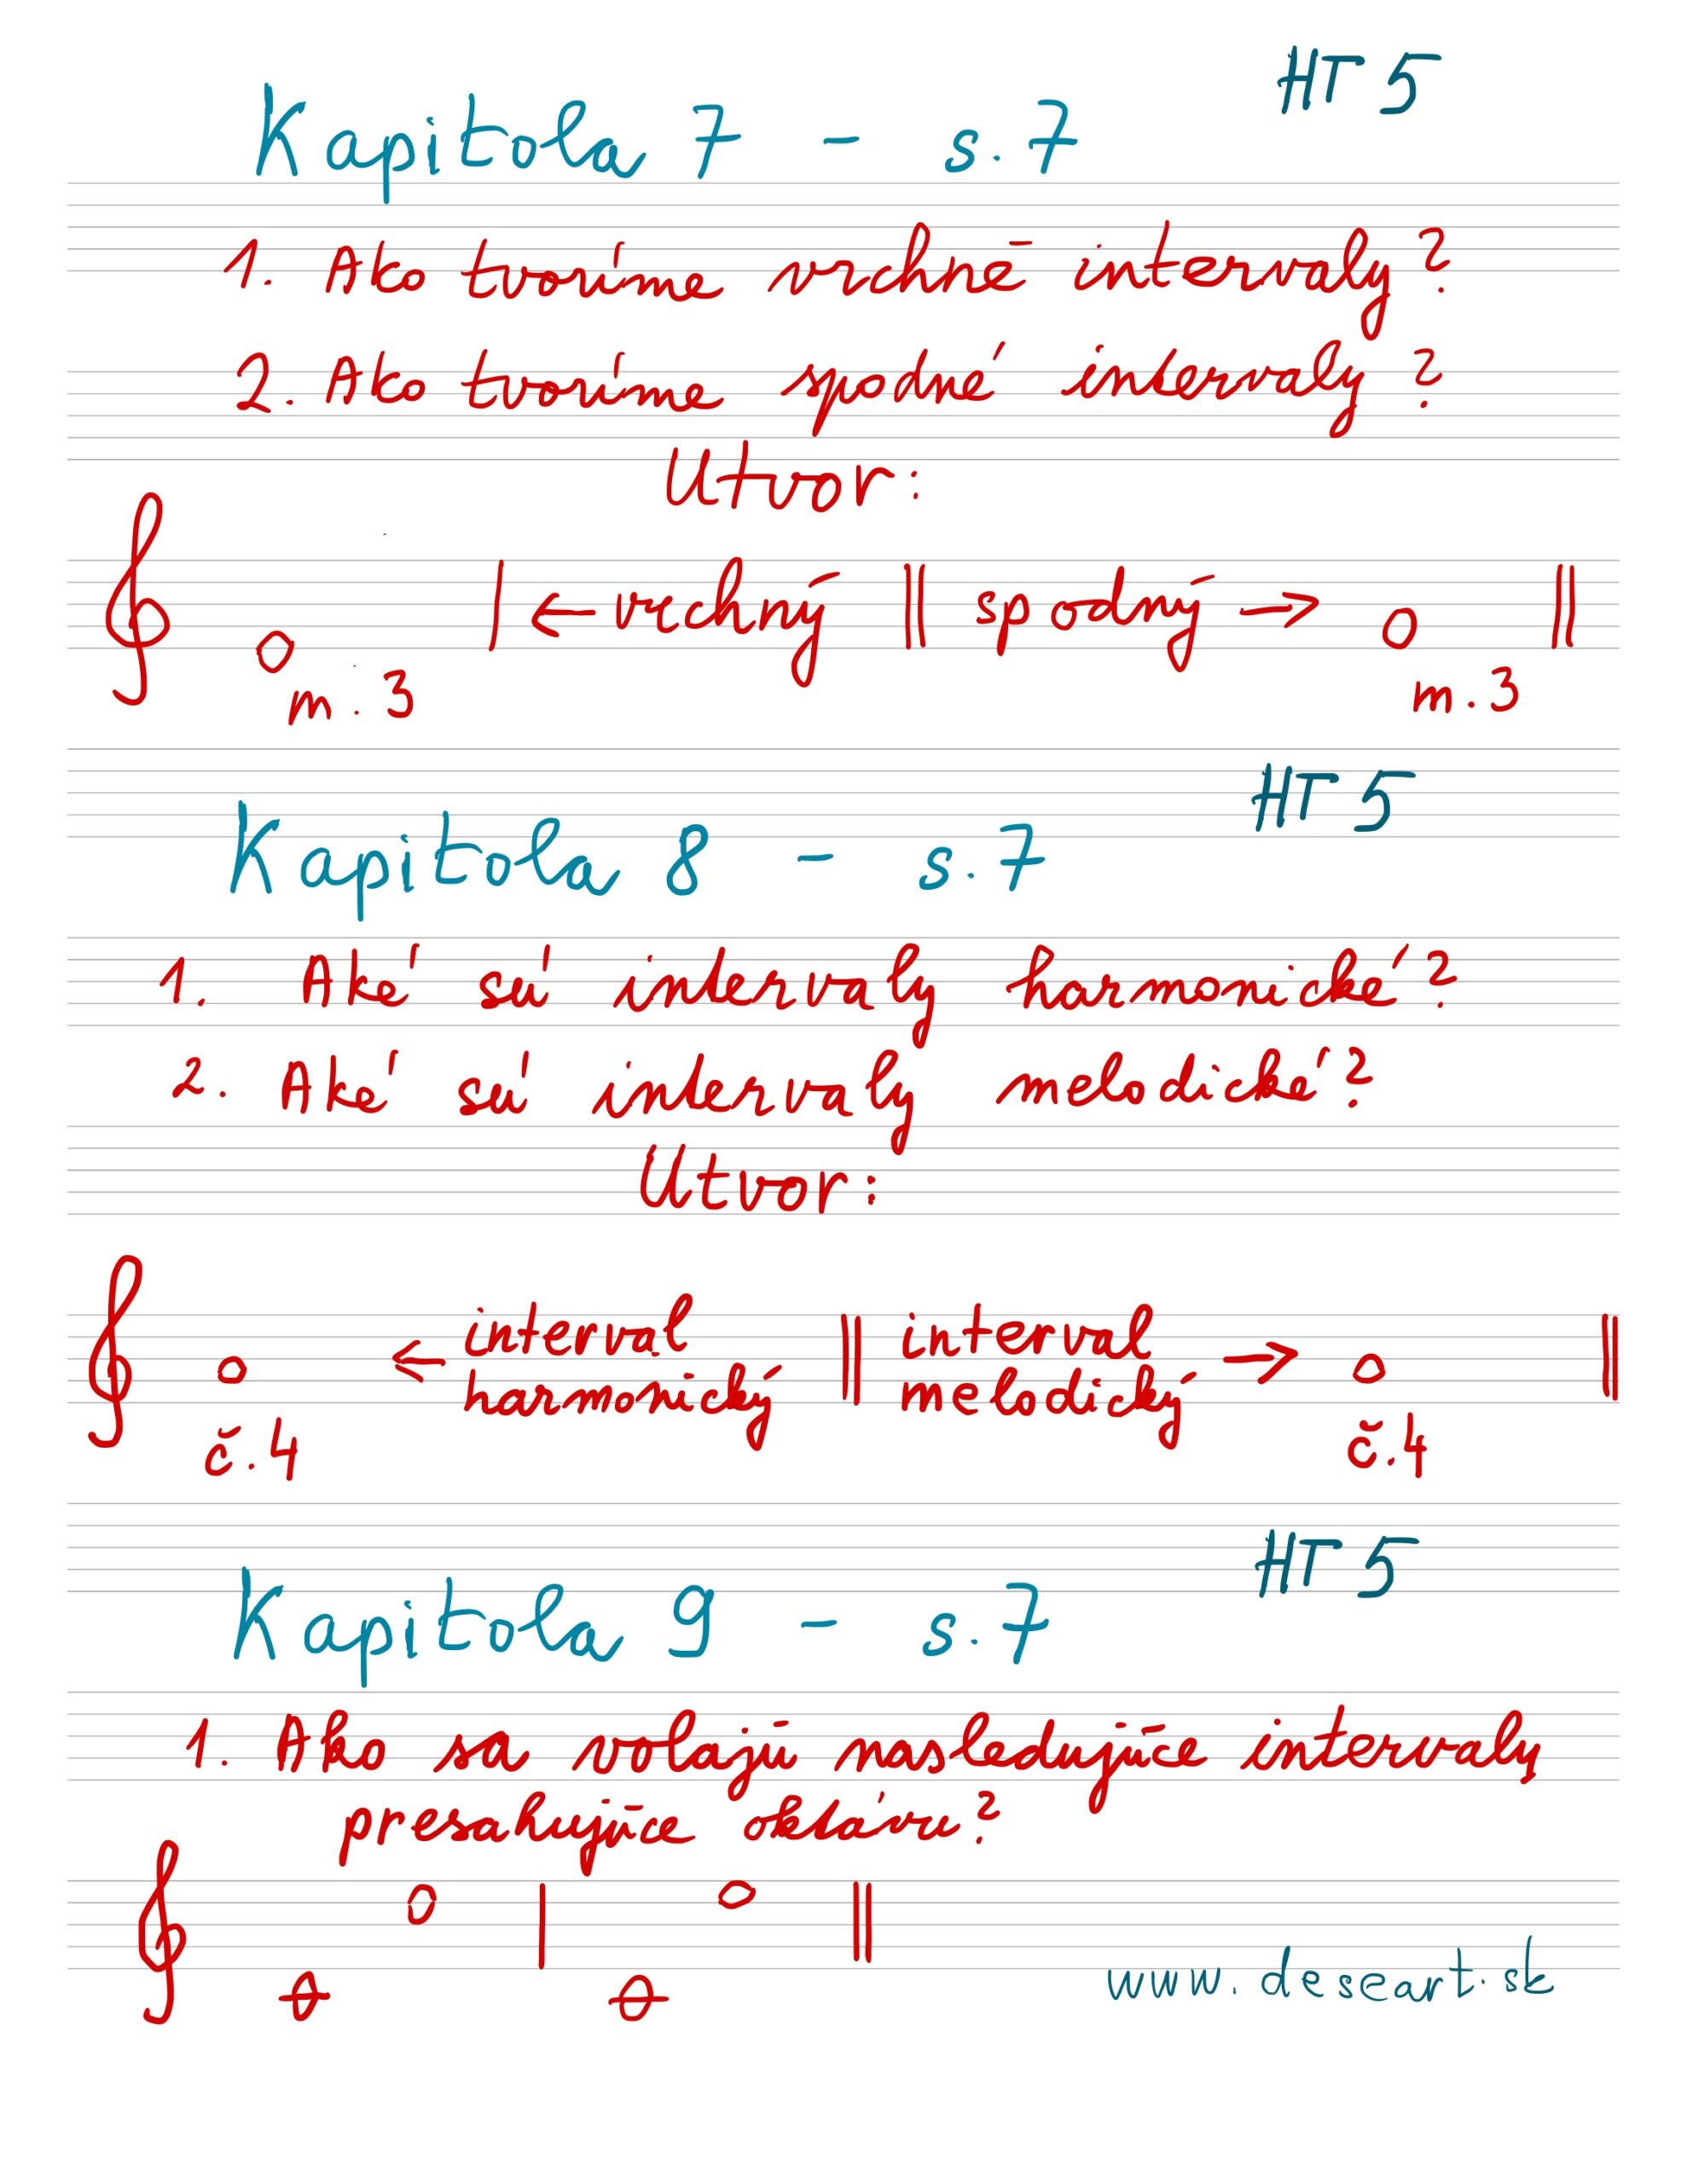 HT 5
Kapitola 7 - s. 7
1. Ako tvoríme vrchné intervaly?
2. Ako tvoríme spodné intervaly?
Utvor:
← vrchný spodný →
m. 3 m. 3
HT 5
Kapitola 8 - s. 7
1. Aké sú intervaly harmonické?
2. Aké sú intervaly melodické?
Utvor:
← interval interval →
harmonický melodický
č. 4 č. 4
HT 5
Kapitola 9 - s. 7
1. Ako sa volajú nasledujúce intervaly
presahujúce oktávu?
www.deseart.sk